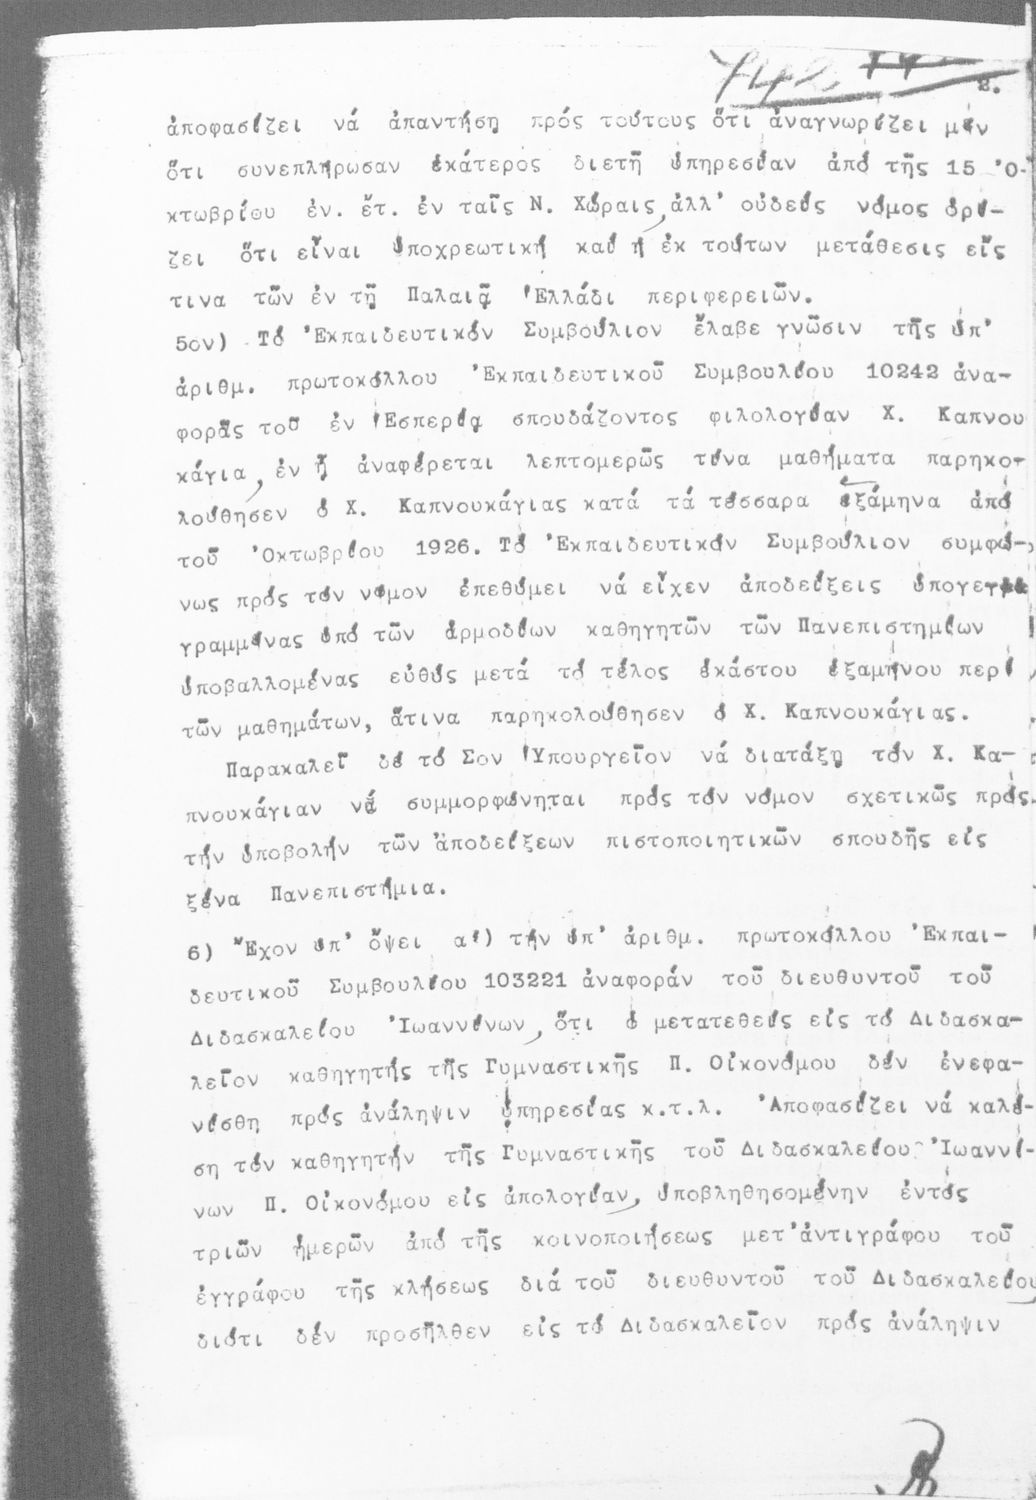 2.
ἀποφασίζει νά ἀπαντήση πρός τούτους ὅτι ἀναγνωρίζει μέν
ὅτι συνεπλήρωσαν ἑκάτερος διετῆ ὑπηρεσίαν ἀπό τῆς 15 Ὀ-
κτωβρίου ἐν. ἔτ. ἐν ταῖς Ν. Χώραις, ἀλλ' οὐδείς νόμος ὁρί-
ζει ὅτι εἶναι ὑποχρεωτική καί ἡ ἐκ τούτων μετάθεσις εἴς
τινα τῶν ἐν τῇ Παλαιᾷ Ἑλλάδι περιφερειῶν.
5ον) Τό Ἐκπαιδευτικόν Συμβούλιον ἔλαβε γνῶσιν τῆς ὑπ'
ἀριθμ. πρωτοκόλλου Ἐκπαιδευτικοῦ Συμβουλίου 10242 ἀνα-
φορᾶς τοῦ ἐν Ἑσπερίᾳ σπουδάζοντος φιλολογίαν Χ. Καπνου
κάγια, ἐν ᾗ ἀναφέρεται λεπτομερῶς τίνα μαθήματα παρηκο-
λούθησεν ὁ Χ. Καπνουκάγιας κατά τά τέσσαρα ἑξάμηνα ἀπό
τοῦ Ὀκτωβρίου 1926. Τό Ἐκπαιδευτικόν Συμβούλιον συμφώ-
νως πρός τόν νόμον ἐπεθύμει νά εἶχεν ἀποδείξεις ὑπογε
γραμμένας ὑπό τῶν ἁρμοδίων καθηγητῶν τῶν Πανεπιστημίων
ὑποβαλλομένας εὐθύς μετά τό τέλος ἑκάστου ἑξαμήνου περί
τῶν μαθημάτων, ἅτινα παρηκολούθησεν ὁ Χ. Καπνουκάγιας.
Παρακαλεῖ δέ τό Σον Ὑπουργεῖον νά διατάξῃ τόν Χ. Κα-
πνουκάγιαν νά συμμορφώνηται πρός τόν νόμον σχετικῶς πρός
τήν ὑποβολήν τῶν ἀποδείξεων πιστοποιητικῶν σπουδῆς εἰς
ξένα Πανεπιστήμια.
6) Ἔχον ὑπ' ὄψει α') τήν ὑπ' ἀριθμ. πρωτοκόλλου Ἐκπαι-
δευτικοῦ Συμβουλίου 103221 ἀναφοράν τοῦ διευθυντοῦ τοῦ
Διδασκαλείου Ἰωαννίνων, ὅτι ὁ μετατεθείς εἰς τό Διδασκα-
λεῖον καθηγητής τῆς Γυμναστικῆς Π. Οἰκονόμου δέν ἐνεφα-
νίσθη πρός ἀνάληψιν ὑπηρεσίας κ.τ.λ. Ἀποφασίζει νά καλέ-
ση τόν καθηγητήν τῆς Γυμναστικῆς τοῦ Διδασκαλείου Ἰωαννί-
νων Π. Οἰκονόμου εἰς ἀπολογίαν, ὑποβληθησομένην ἐντός
τριῶν ἡμερῶν ἀπό τῆς κοινοποιήσεως μετ' ἀντιγράφου τοῦ
ἐγγράφου τῆς κλήσεως διά τοῦ διευθυντοῦ τοῦ Διδασκαλείου,
διότι δέν προσῆλθεν εἰς τό Διδασκαλεῖον πρός ἀνάληψιν